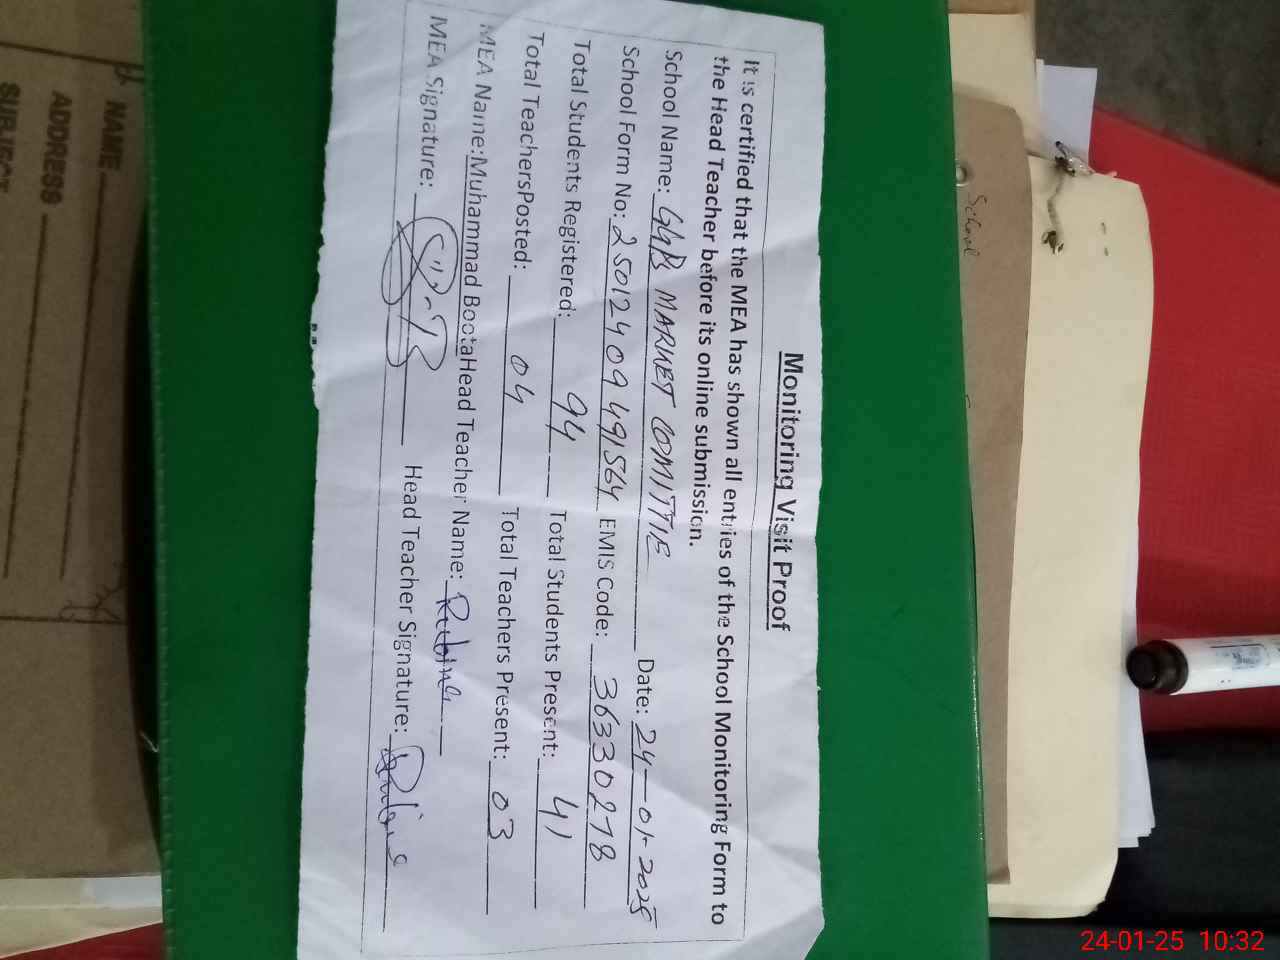 Monitoring Visit Proof
It is certified that the MEA has shown all entries of the School Monitoring Form to
the Head Teacher before its online submission.
School Name: GGPS MARKET COMITTIE Date: 24-01-2025
School Form No: 25012409491564 EMIS Code: 36330278
Total Students Registered: 94 Total Students Present: 41
Total TeachersPosted: 04 Total Teachers Present: 03
MEA Name:Muhammad BootaHead Teacher Name: Rubina
MEA Signature: Head Teacher Signature: Rubina
NAME
ADDRESS
SUBJECT
School
24-01-25 10:32